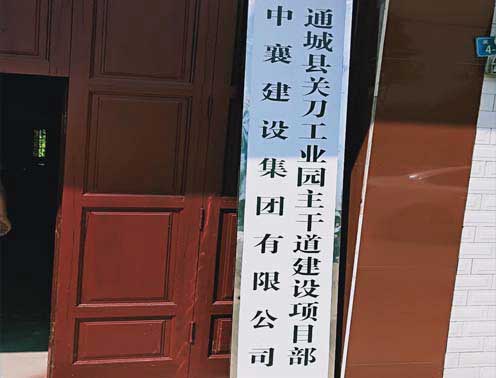 中襄建设集团有限公司
通城县关刀工业园主干道建设项目部